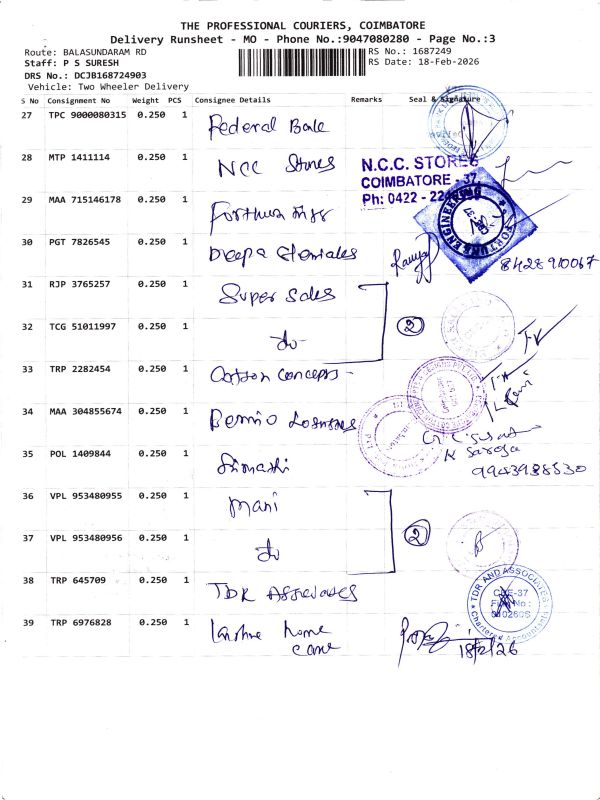 THE PROFESSIONAL COURIERS, COIMBATORE
Delivery Runsheet - MO - Phone No.:9047080280 - Page No.:3
Route: BALASUNDARAM RD
RS No.: 1687249
Staff: P S SURESH
RS Date: 18-Feb-2026
DRS No.: DCJB168724903
Vehicle: Two Wheeler Delivery
S No Consignment No Weight PCS Consignee Details Remarks Seal & Signature
27 TPC 9000080315 0.250 1 Federal
28 MTP 1411114 0.250 1 NCC Stores
N.C.C. STORES
COIMBATORE - 37
Ph: 0422 -
29 MAA 715146178 0.250 1
FORTUNE ENGINEERING
30 PGT 7826545 0.250 1 Deepa
8428910067
31 RJP 3765257 0.250 1 Super Sales
2
32 TCG 51011997 0.250 1 do
33 TRP 2282454 0.250 1 Cotton Concepts
34 MAA 304855674 0.250 1
35 POL 1409844 0.250 1
K Saroja
9943988530
36 VPL 953480955 0.250 1 Mani
2
37 VPL 953480956 0.250 1 do
38 TRP 645709 0.250 1 TDR Associates
TDR AND ASSOCIATES
CBE-37
Chartered Accountants
39 TRP 6976828 0.250 1 home
care
18/2/26